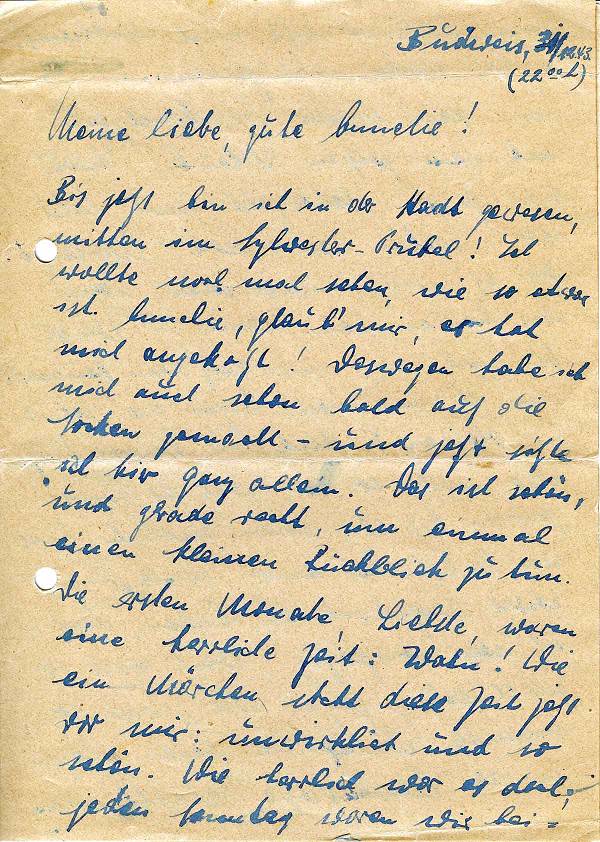 Budweis, 31/12.43.
(22 ºº h)
Meine liebe, gute Annelie!
Bis jetzt bin ich in der Stadt gewesen,
mitten im Sylvester-Trubel! Ich
wollte noch mal sehen, wie so etwas
ist. Annelie, glaub' mir, es hat
mich angekotzt! Deswegen habe ich
mich auch schon bald auf die
Socken gemacht - und jetzt sitze
ich hier ganz allein. Das ist schön,
und grade recht, um einmal
einen kleinen Rückblick zu tun.
Die ersten Monate Liebste, waren
eine herrliche Zeit: Wahn! Wie
ein Märchen steht diese Zeit jetzt
vor mir: unwirklich und so
schön. Wie herrlich war es doch,
jeden Sonntag waren wir bei-